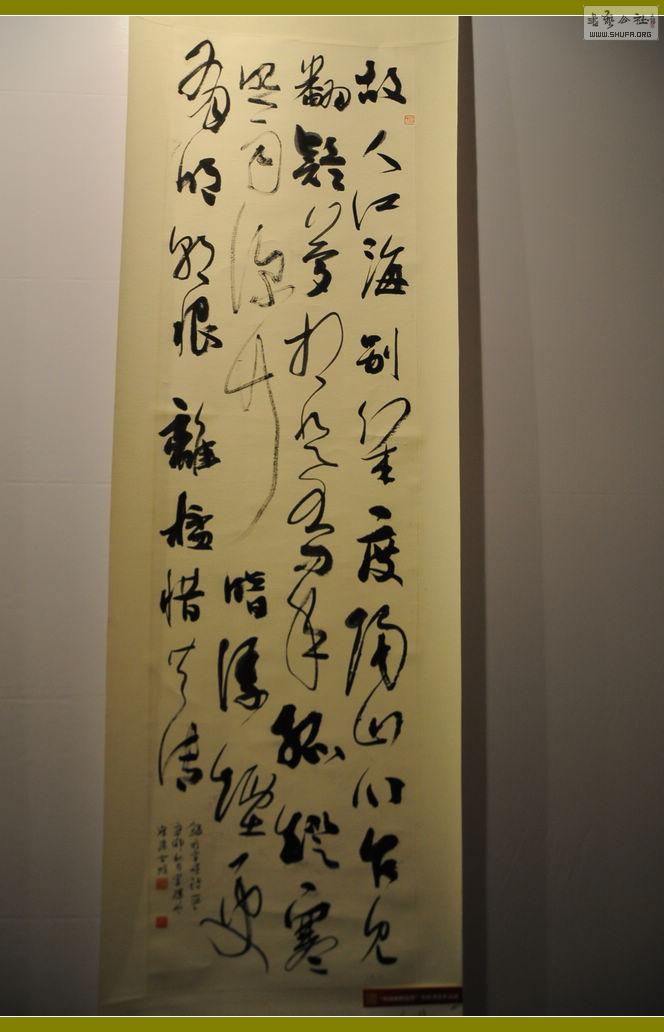 故人江海別幾度隔山川乍見
翻疑夢相悲各問年孤燈寒
照雨深竹暗浮煙更
有明朝恨離杯惜共傳
書藝公社
WWW.SHUFA.ORG